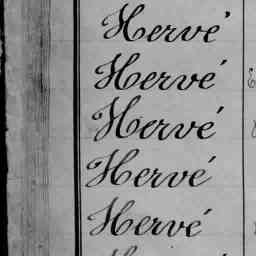 Hervé
Hervé
Hervé
Hervé
Hervé